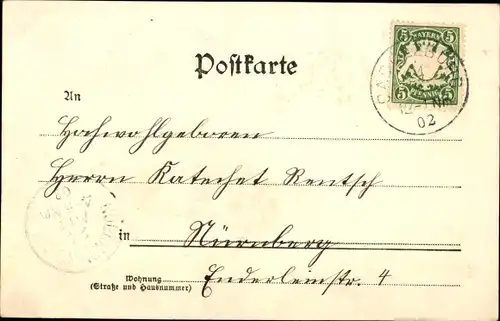 5 BAYERN 5
5 PFENNIG 5
02
Postkarte
An
Hochwohlgeboren
Herrn Katechet Rentsch
in Nürnberg
Wohnung Enderleinstr. 4
(Straße und Hausnummer)